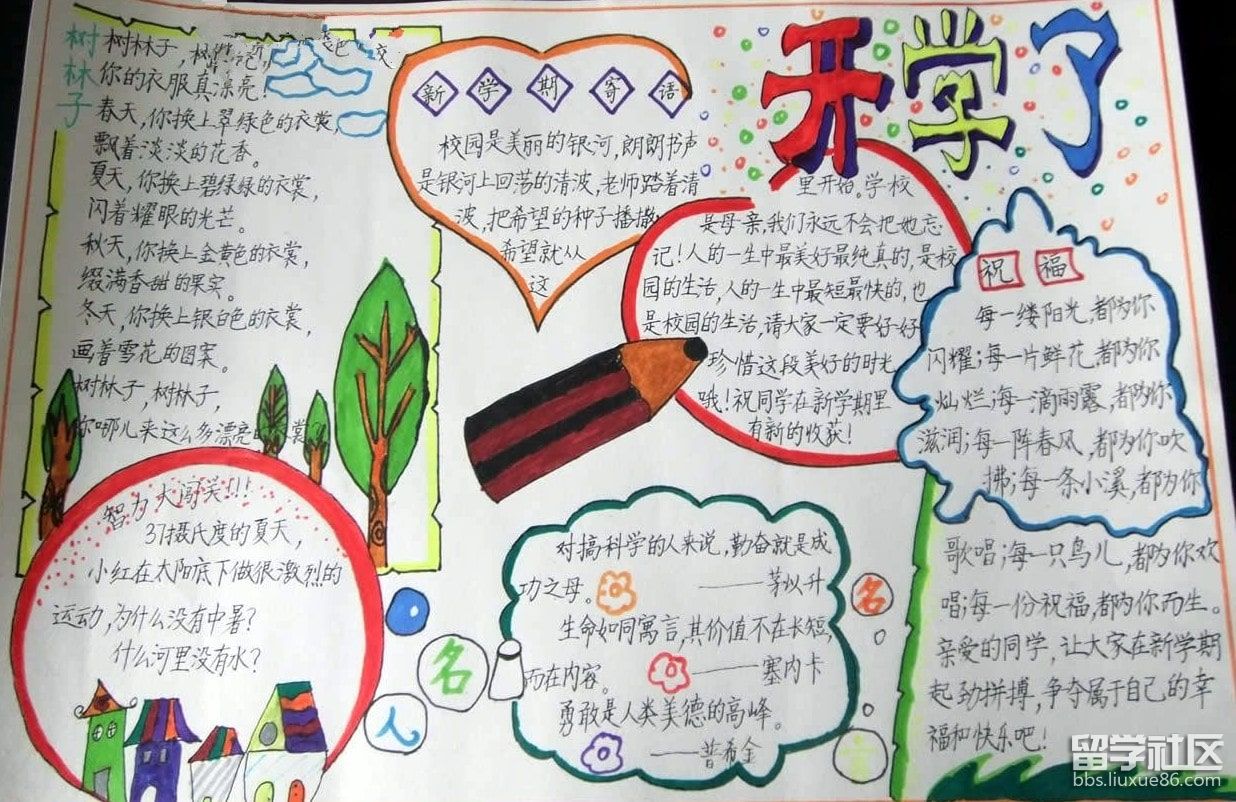 开学了
树林子
树林子，树
你的衣服真漂亮！
春天，你换上翠绿色的衣裳，
飘着淡淡的花香。
夏天，你换上碧绿绿的衣裳，
闪着耀眼的光芒。
秋天，你换上金黄色的衣裳，
缀满香甜的果实。
冬天，你换上银白色的衣裳，
画着雪花的图案。
树林子，树林子，
你哪儿来这么多漂亮
新学期寄语
校园是美丽的银河，朗朗书声
是银河上回荡的清波，老师踏着清
波，把希望的种子播撒
希望就从
这
里开始。学校
是母亲，我们永远不会把她忘
记！人的一生中最美好最纯真的，是校
园的生活，人的一生中最短最快的，也
是校园的生活，请大家一定要好好
珍惜这段美好的时光
哦！祝同学在新学期里
有新的收获！
祝福
每一缕阳光，都为你
闪耀；每一片鲜花，都为你
灿烂；每一滴雨露，都为你
滋润；每一阵春风，都为你吹
拂；每一条小溪，都为你
歌唱；每一只鸟儿，都为你欢
唱；每一份祝福，都为你而生。
亲爱的同学，让大家在新学期
起劲拼搏，争夺属于自己的幸
福和快乐吧！
智力大闯关！！！
37摄氏度的夏天，
小红在太阳底下做很激烈的
运动，为什么没有中暑？
什么河里没有水？
名人
对搞科学的人来说，勤奋就是成
功之母。 ——茅以升
生命如同寓言，其价值不在长短，
而在内容。 ——塞内卡
勇敢是人类美德的高峰。
——普希金
名言
留学社区
bbs.liuxue86.com